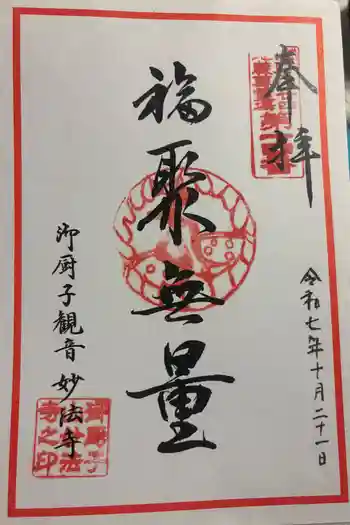 奉拝
令和七年十月二十一日
福聚無量
御厨子観音 妙法寺